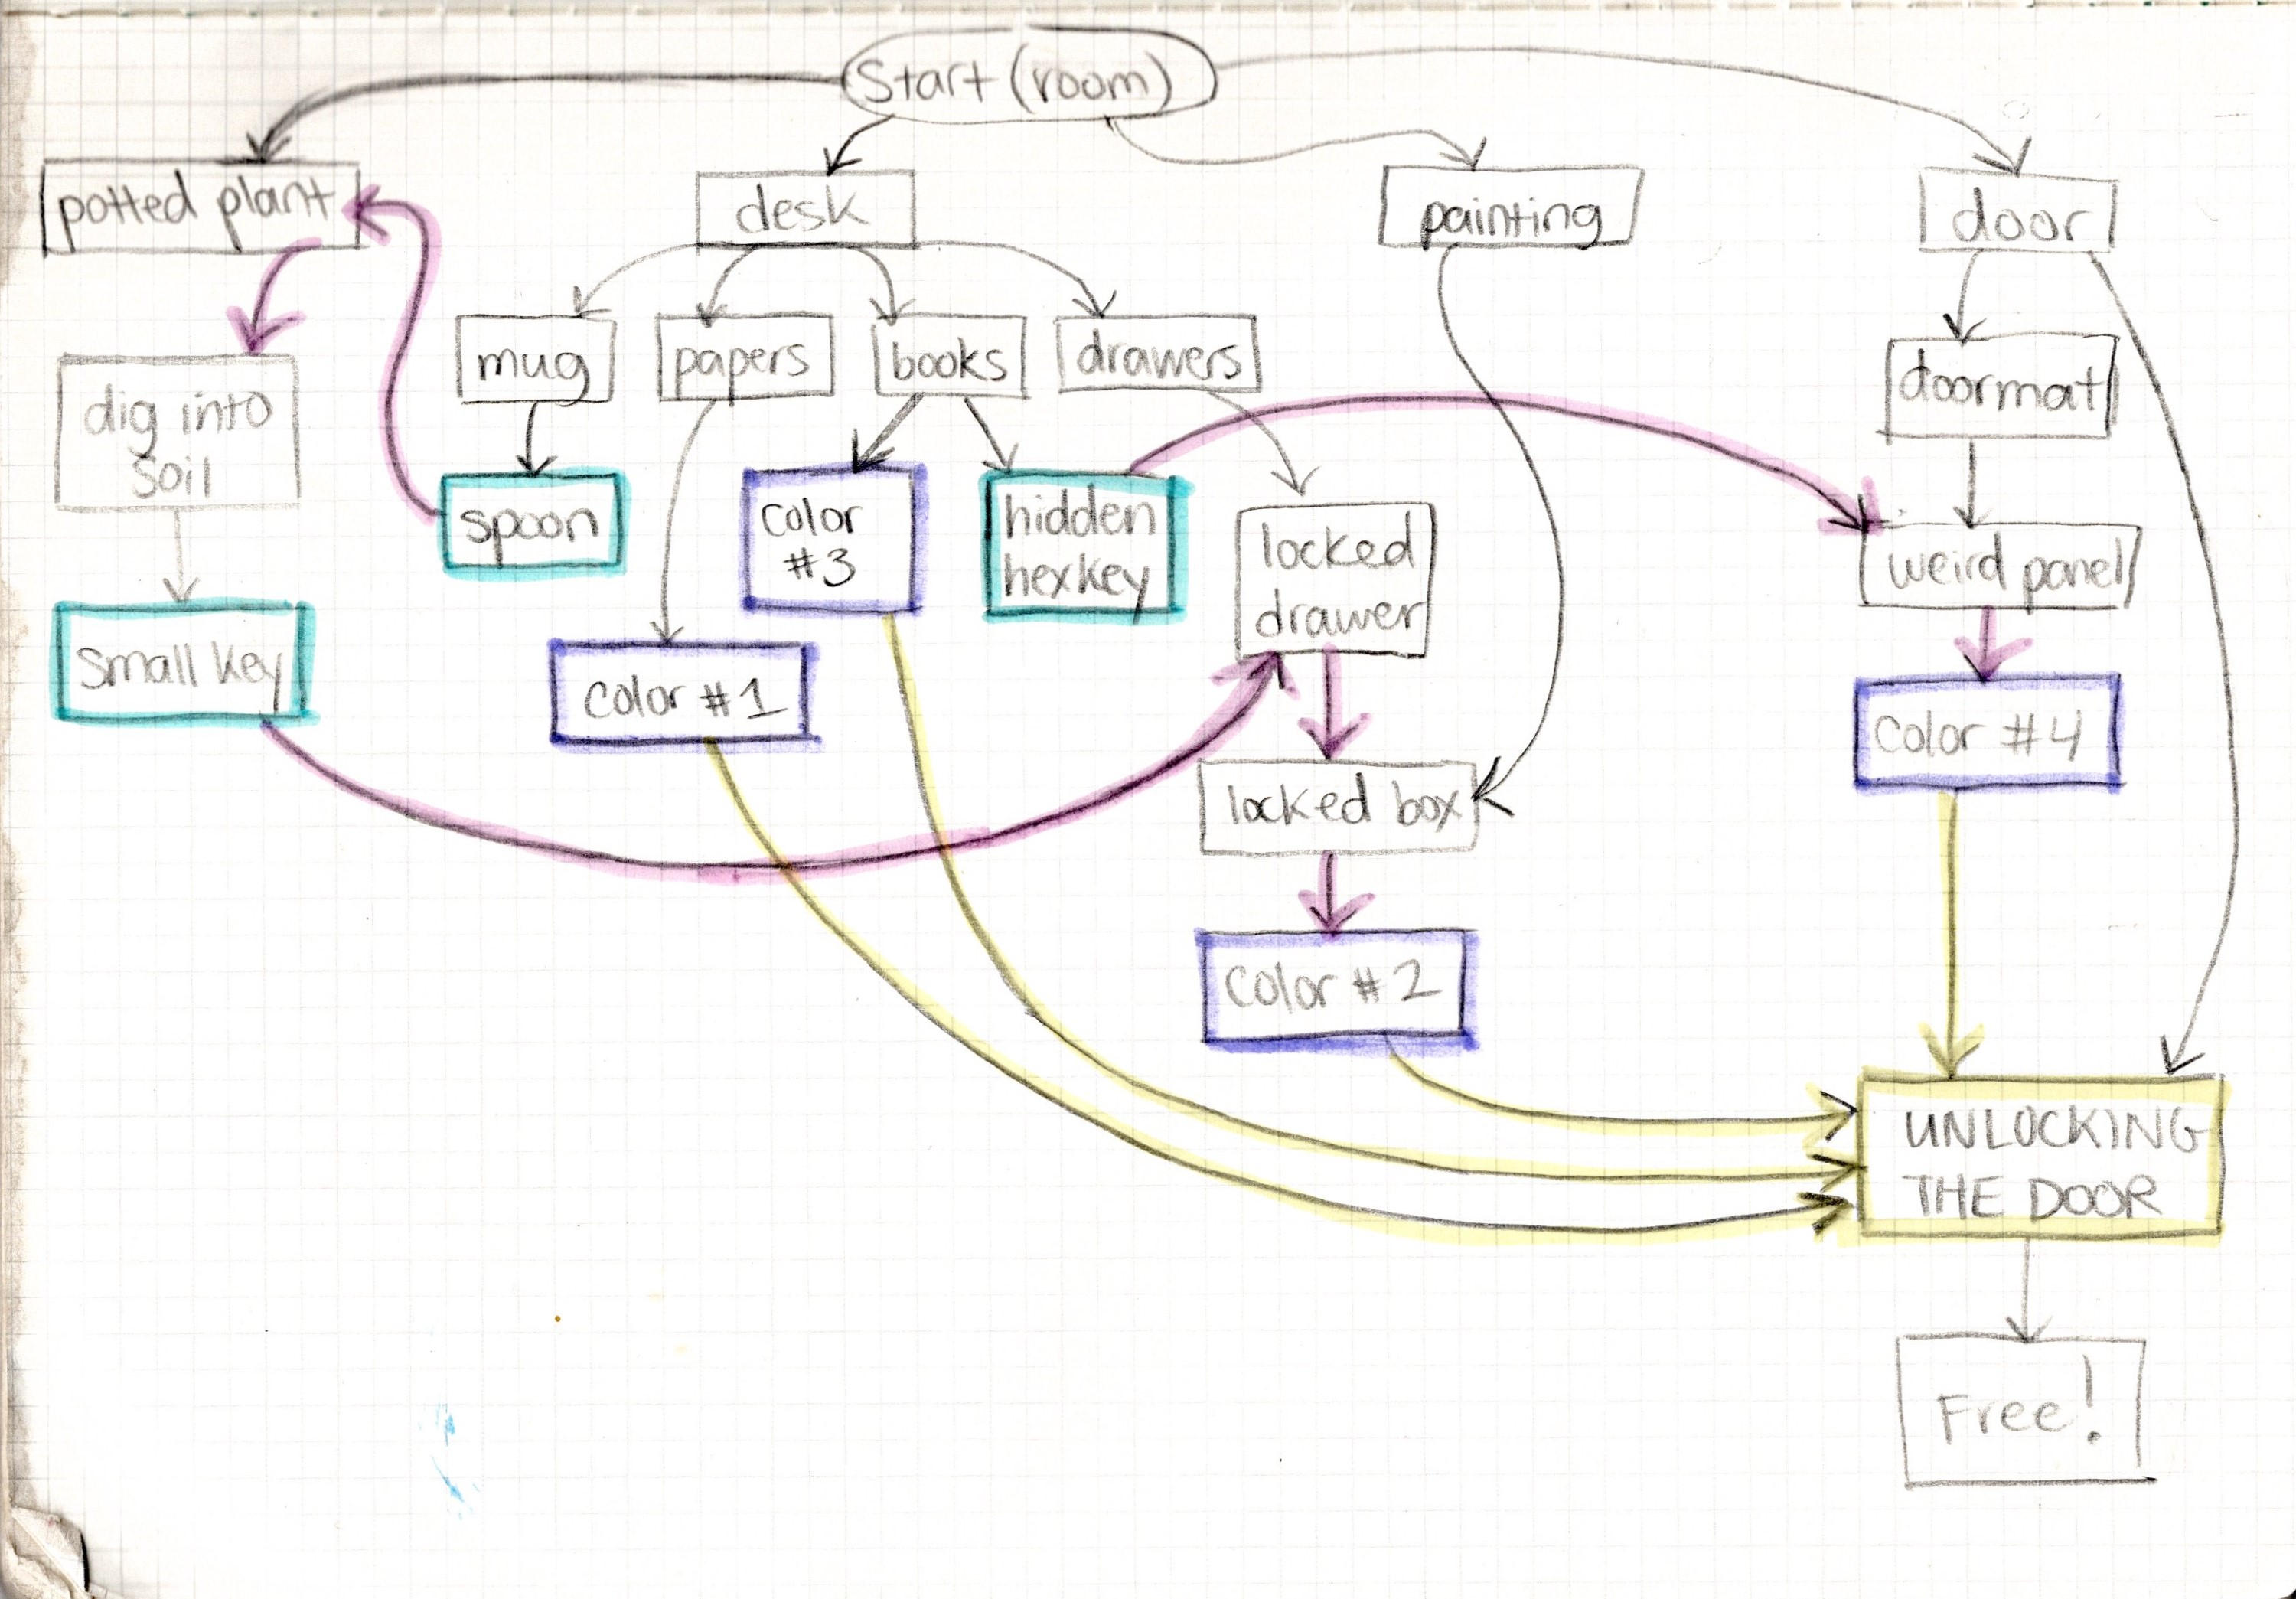 Start (room)
potted plant
desk
painting
door
mug
papers
books
drawers
doormat
dig into
soil
spoon
color
#3
hidden
hexkey
locked
drawer
weird panel
small key
color #1
color #4
locked box
color #2
UNLOCKING
THE DOOR
Free!